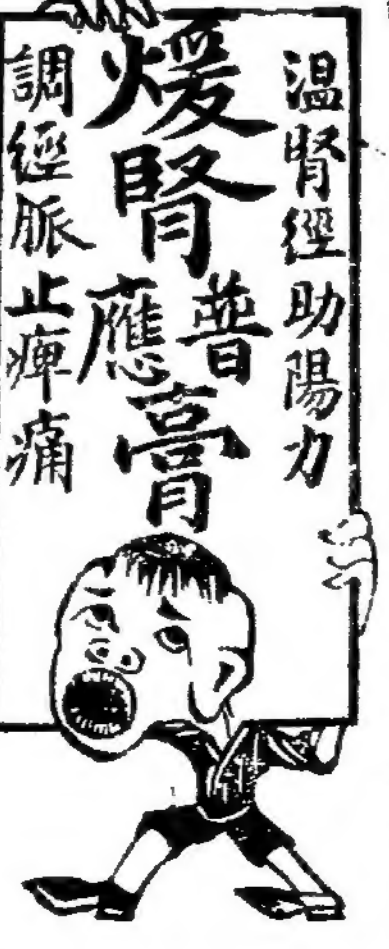 温腎經助陽力
煖腎普應膏
調經脈止痺痛